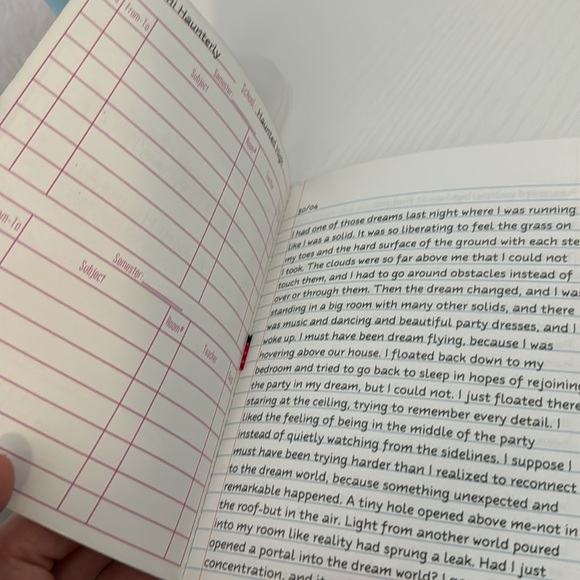 Haunterly
From-To
Subject
Semester
School
Haunted High
Room#
From-To
Subject
Semester:
Room#
Teacher
30/04
I had one of those dreams last night where I was running
like I was a solid. It was so liberating to feel the grass on
my toes and the hard surface of the ground with each ste
I took. The clouds were so far above me that I could not
touch them, and I had to go around obstacles instead of
over or through them. Then the dream changed, and I was
standing in a big room with many other solids, and there
was music and dancing and beautiful party dresses, and I
woke up. I must have been dream flying, because I was
hovering above our house. I floated back down to my
bedroom and tried to go back to sleep in hopes of rejoining
the party in my dream, but I could not. I just floated there
staring at the ceiling, trying to remember every detail. I
liked the feeling of being in the middle of the party
instead of quietly watching from the sidelines. I suppose I
must have been trying harder than I realized to reconnect
to the dream world, because something unexpected and
remarkable happened. A tiny hole opened above me-not in
the roof-but in the air. Light from another world poured
into my room like reality had sprung a leak. Had I just
opened a portal into the dream world?
concentration, and